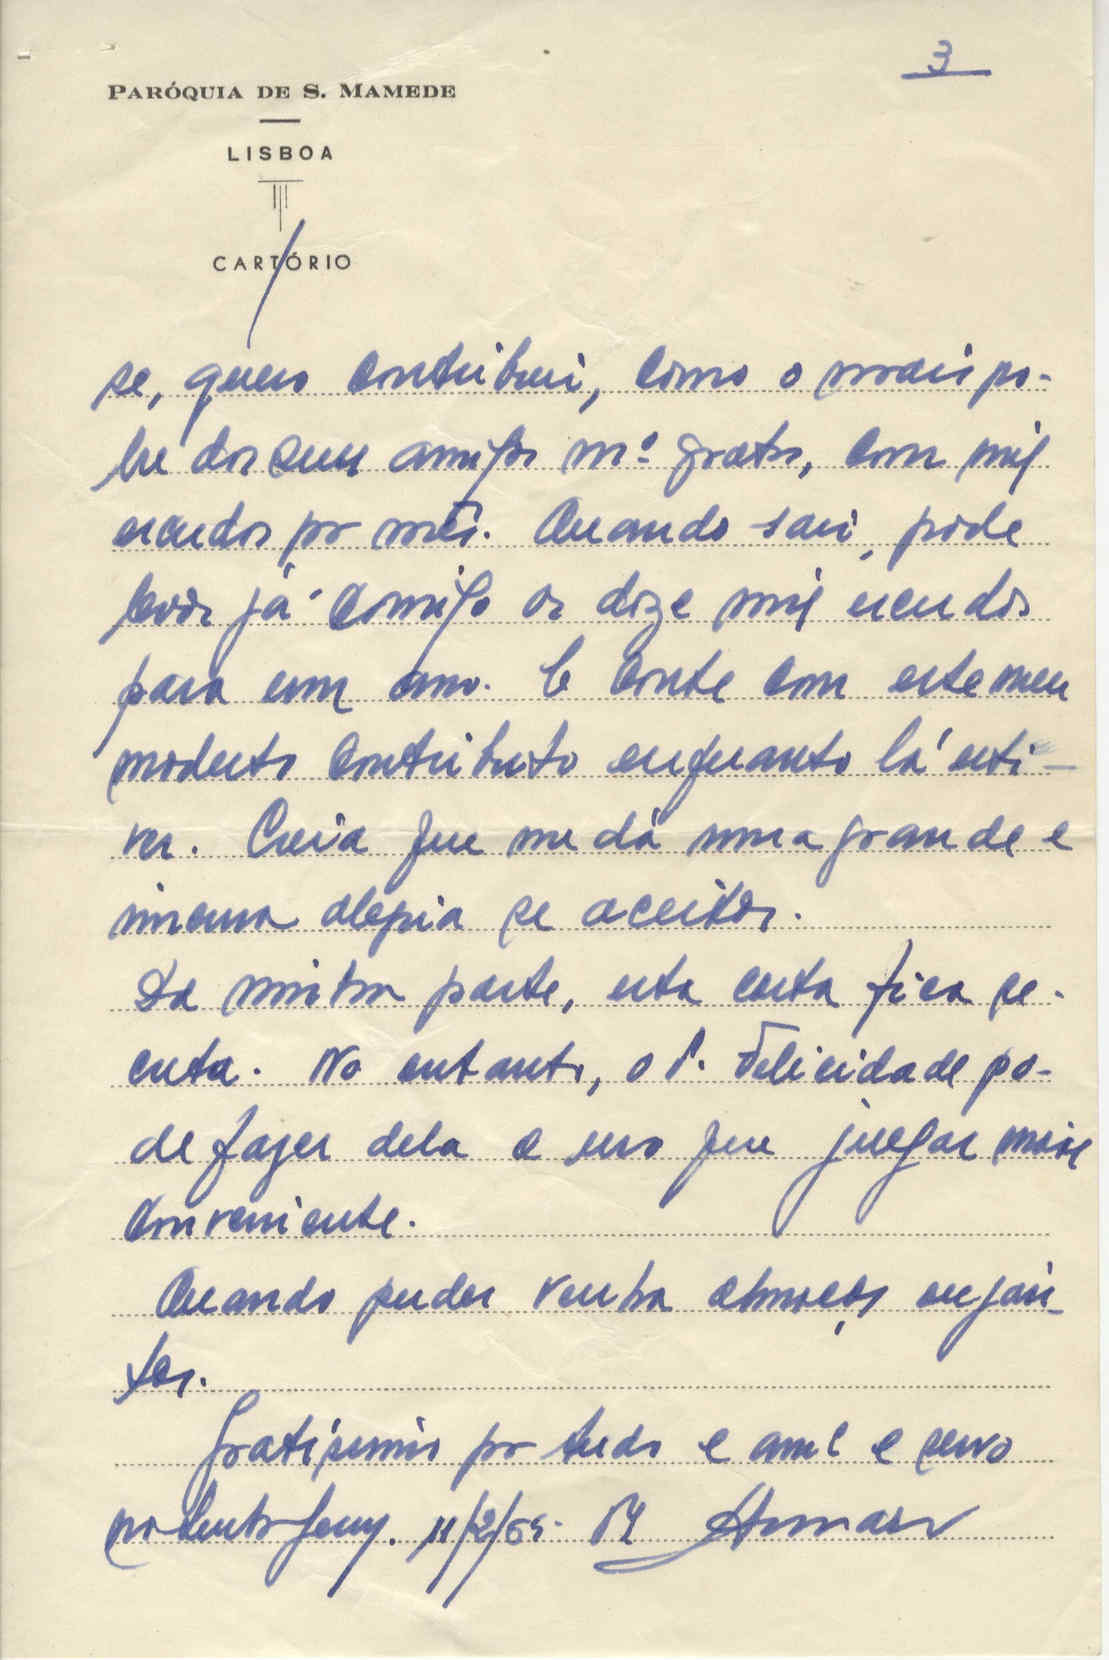 3
PARÓQUIA DE S. MAMEDE
LISBOA
CARTÓRIO
se, quero contribuir, como o mais po-
bre dos seus amigos m.º gratos, com mil
escudos por mês. Quando sair, pode
levar já comigo os doze mil escudos
para um ano. E conte com este meu
modesto contributo enquanto lá esti-
ver. Creia que me dá uma grande e
imensa alegria se aceitar.
Da minha parte, esta carta fica se-
creta. No entanto, o P. Felicidade po-
de fazer dela o uso que julgar mais
conveniente.
Quando puder venha almoçar ou jan-
tar.
Gratíssimo por tudo e am.º e servo
in Xto Jesu. 11/2/65.